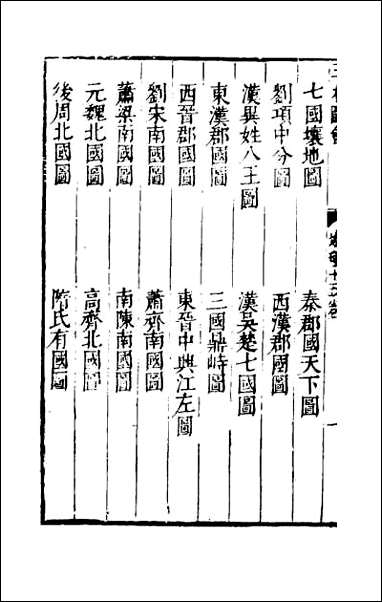 七國壤地圖
秦郡國天下圖
劉項中分圖
西漢郡國圖
漢異姓八王圖
漢吳楚七國圖
東漢郡國圖
三國鼎峙圖
西晉郡國圖
東晉中興江左圖
劉宋南國圖
蕭齊南國圖
蕭梁南國圖
南陳南國圖
元魏北國圖
高齊北國圖
後周北國圖
隋氏有國圖